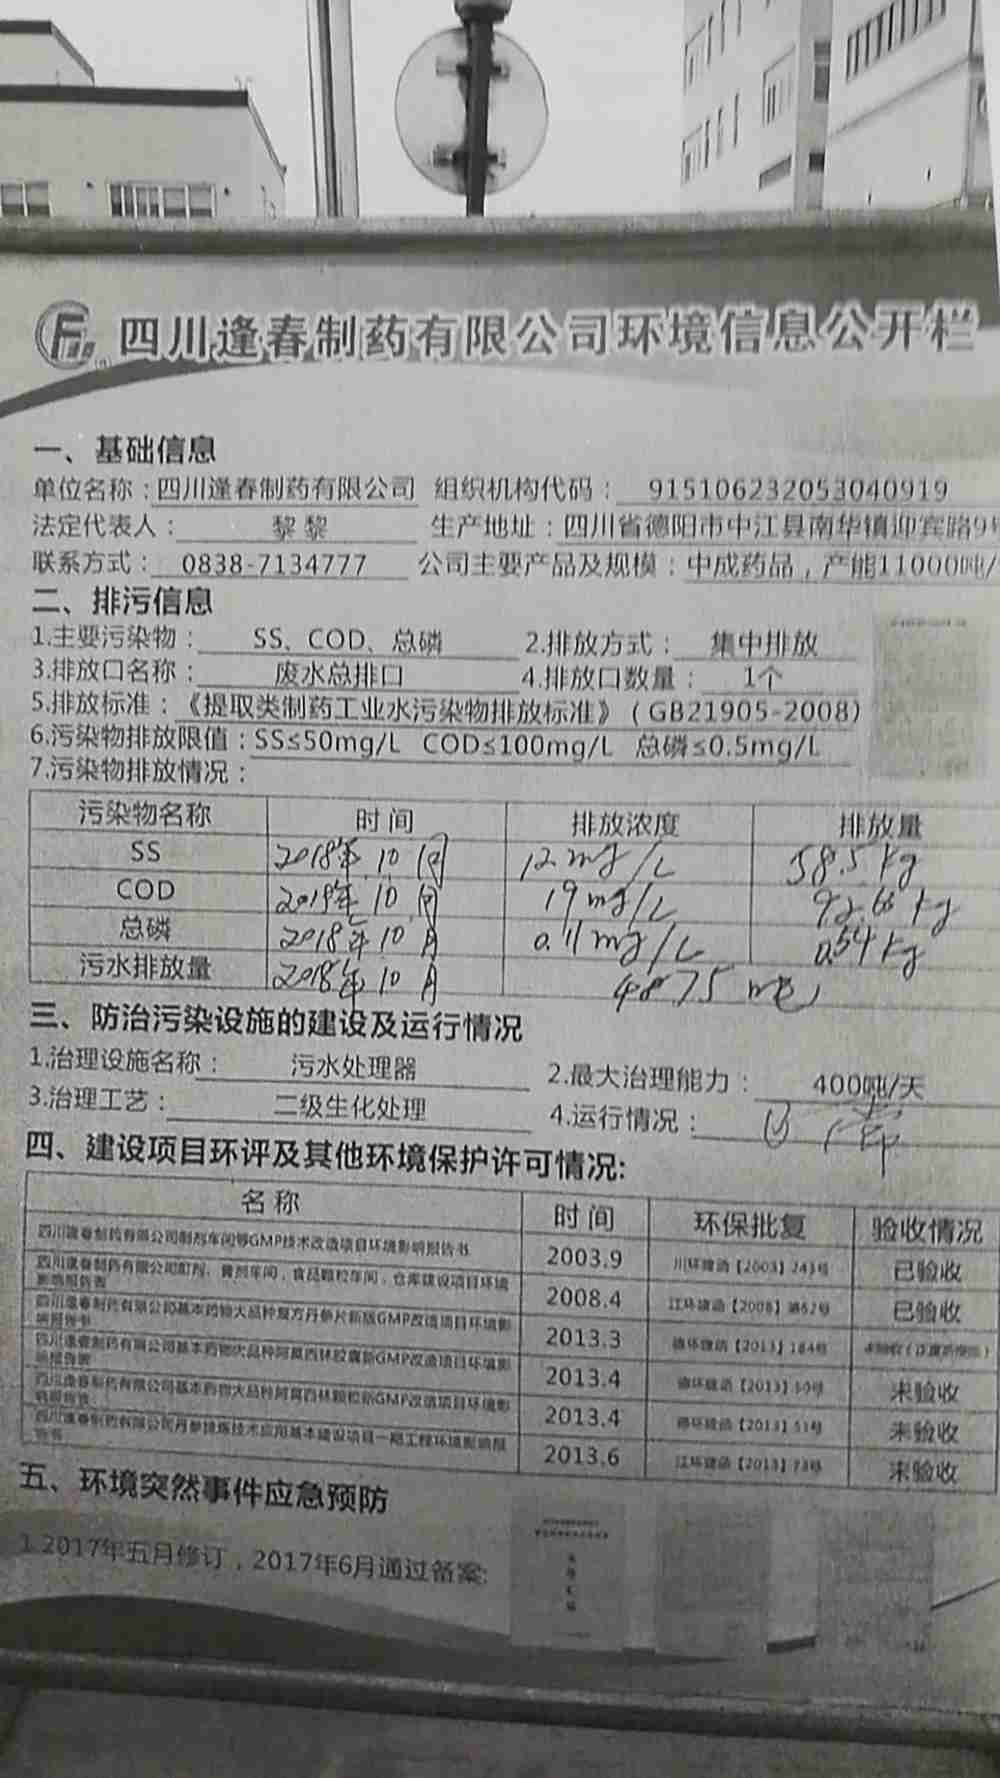 四川逢春制药有限公司环境信息公开栏
一、基础信息
单位名称：四川逢春制药有限公司 组织机构代码： 915106232053040919
法定代表人： 黎黎 生产地址：四川省德阳市中江县南华镇迎宾路
联系方式： 0838-7134777 公司主要产品及规模：中成药品，产能11000吨/
二、排污信息
1.主要污染物： SS、COD、总磷 2.排放方式： 集中排放
3.排放口名称： 废水总排口 4.排放口数量： 1个
5.排放标准：《提取类制药工业水污染物排放标准》（GB21905-2008）
6.污染物排放限值：SS≤50mg/L COD≤100mg/L 总磷≤0.5mg/L
7.污染物排放情况：
污染物名称 时间 排放浓度 排放量
SS 2018年10月 12mg/L 58.5kg
COD 2018年10月 19mg/L 92.66kg
总磷 2018年10月 0.11mg/L 0.54kg
污水排放量 2018年10月 4875吨
三、防治污染设施的建设及运行情况
1.治理设施名称： 污水处理器 2.最大治理能力： 400吨/天
3.治理工艺： 二级生化处理 4.运行情况：
四、建设项目环评及其他环境保护许可情况:
名称 时间 环保批复 验收情况
四川逢春制药有限公司制剂车间够GMP技术改造项目环境影响报告书 2003.9 川环建函【2003】243号 已验收
四川逢春制药有限公司酊剂、膏剂车间，食品颗粒车间，仓库建设项目环境
影响报告表 2008.4 江环建函【2008】第62号 已验收
四川逢春制药有限公司基本药物大品种复方丹参片新版GMP改造项目环境影
响报告书 2013.3 德环建函【2013】184号 未验收
四川逢春制药有限公司基本药物大品种阿莫西林胶囊新GMP改造项目环境影
响报告表 2013.4 德环建函【2013】50号 未验收
四川逢春制药有限公司基本药物大品种阿莫西林颗粒新GMP改造项目环境影
响报告表 2013.4 德环建函【2013】51号 未验收
四川逢春制药有限公司丹参提炼技术应用基本建设项目一期工程环境影响报
告书 2013.6 江环建函【2013】73号 未验收
五、环境突然事件应急预防
1.2017年五月修订，2017年6月通过备案: